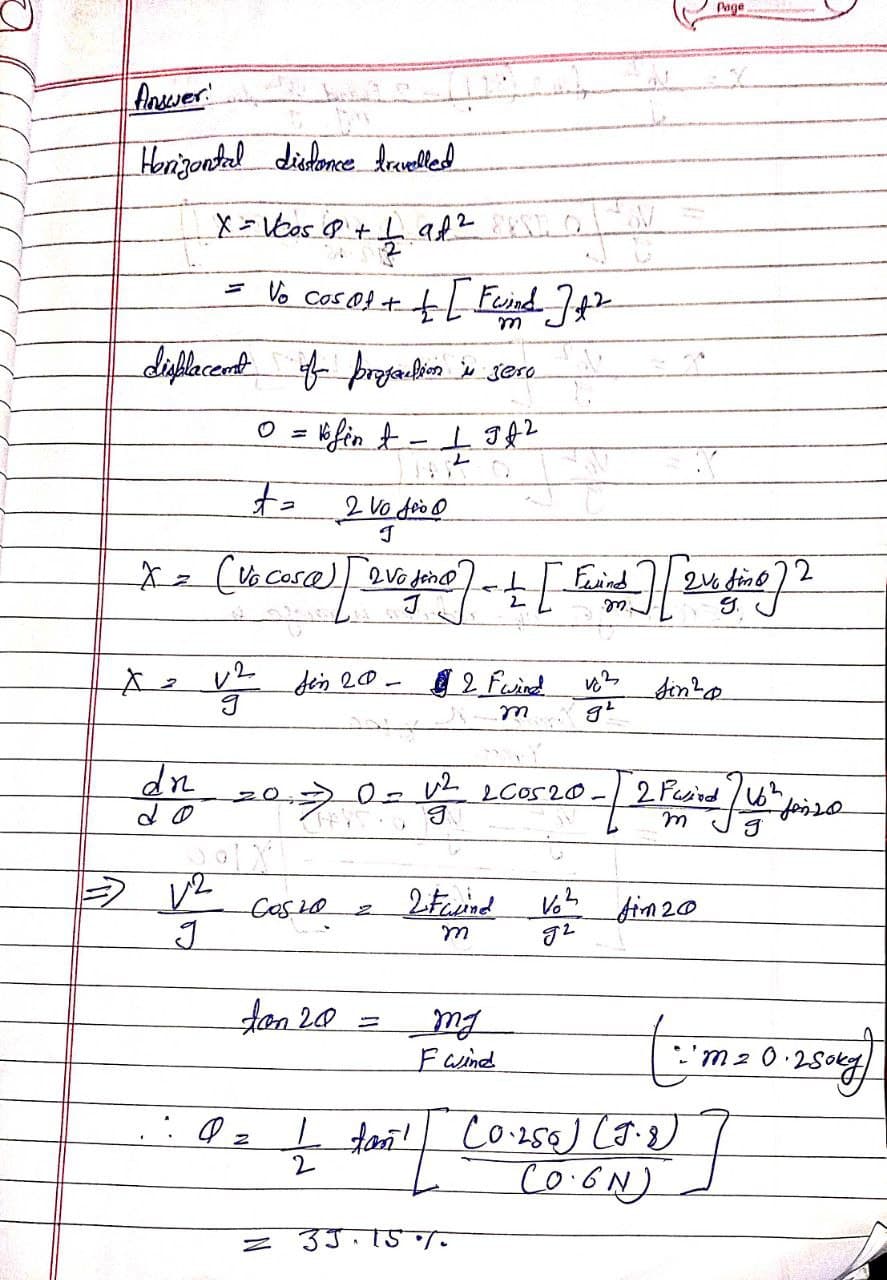 Page
Answer:
Horizontal distance travelled
X = Vcos θ + 1/2 at²
= V₀ cos θt + 1/2 [Fwind/m] t²
displacemt of projection is zero
0 = V₀ sin t - 1/2 gt²
t = 2 V₀ sin θ / g
X = (V₀ cos θ) [2V₀ sin θ / g] - 1/2 [Fwind/m] [2V₀ sin θ / g]²
X = V²/g sin 2θ - 2 Fwind/m V₀²/g² sin²θ
dx/dθ = 0 ⇒ 0 = V²/g 2 cos 2θ - [2 Fwind/m] V₀²/g sin 2θ
⇒ V²/g cos 2θ = 2 Fwind/m V₀²/g² sin 2θ
tan 2θ = mg/F wind (∵ m = 0.250kg)
∴ θ = 1/2 tan⁻¹ [(0.250) (9.8) / (0.6 N)]
= 39.15 %.